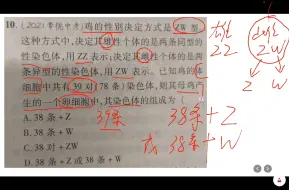 10.（2021·常德中考）鸡的性别决定方式是 ZW 型
这种方式中,决定其雄性个体的是两条同型的
性染色体,用 ZZ 表示;决定其雌性个体的是两
条异型的性染色体,用 ZW 表示。已知鸡的体
细胞中共有 39 对(78 条)染色体,则其母鸡产
生的一个卵细胞中,其染色体的组成为（
A. 38 条 + Z
B. 38 条 + W
C. 38 对 + ZW
D. 38 条 + Z 或 38 条 + W
39条
38条 + Z
或 38条 + W
雄
ZZ
ZW
Z W